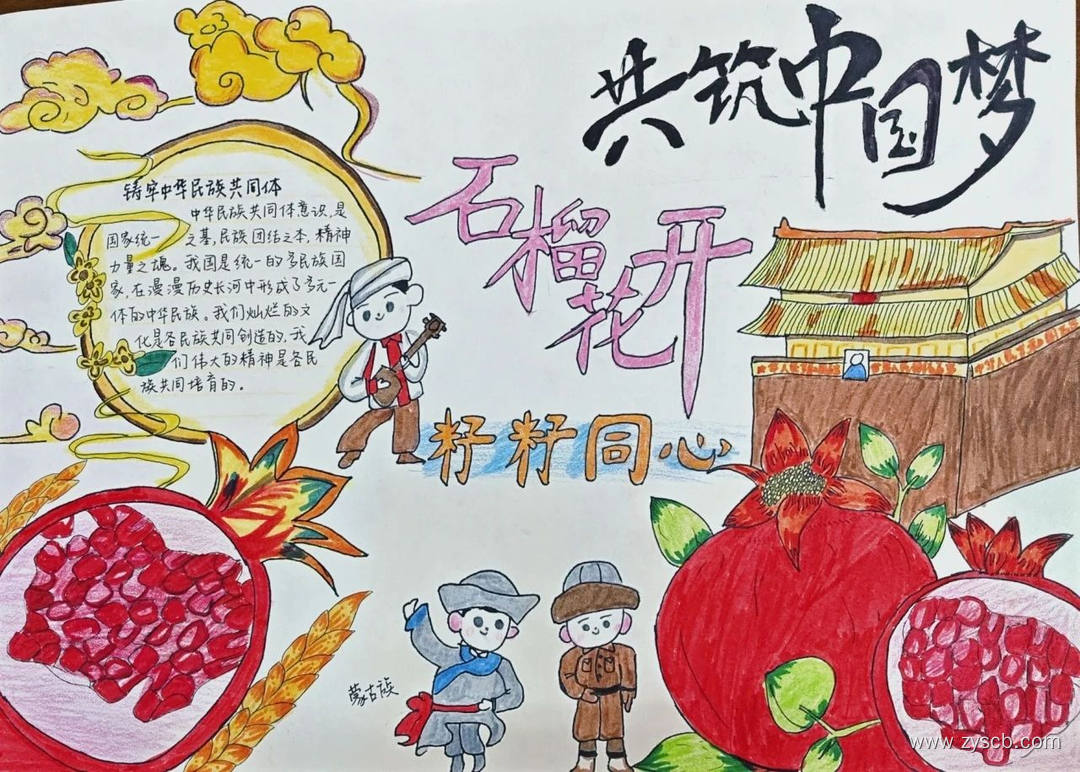 共筑中国梦
石榴花开
籽籽同心
铸牢中华民族共同体
中华民族共同体意识,是
国家统一之基,民族团结之本,精神
力量之魂。我国是统一的多民族国
家,在漫漫历史长河中形成了多元一
体的中华民族。我们灿烂的文
化是各民族共同创造的,我
们伟大的精神是各民
族共同培育的。
蒙古族
www.zyscb.com